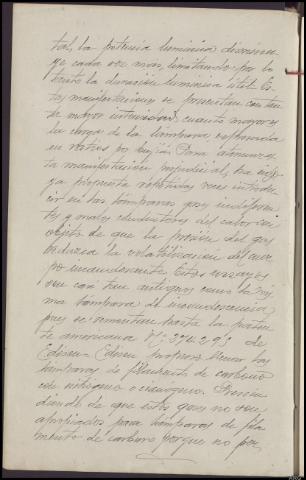 tal, la potencia luminica disminu
ye cada vez mas, limitando por lo
tanto la duracion luminica útil. Es
tas manifestaciones se presentan con tan
ta mayor intensidad cuanto mayor es
la carga de la lampara, expresada
en watios por bujía. Para atenuar es
ta manifestacion perjudicial, se
ya propuesto repetidas veces introdu
cir en las lamparas gases indiferen
tes y malos conductores del calor con
objeto de que la presion del gas
reduzca la volatilizacion del cuer
po incandescente. Estos ensayos
son casi tan antiguos como la mis
ma lámpara de incandescencia,
pues se remontan hasta la paten
te americana Nº 274.295 de
Edison. Edison propone llenar las
lámparas de filamento de carbono
con nitrógeno o cianógeno. Prescin
diendo de que estos gases no son
apropiados para lámparas de fila
mento de carbono porque no per